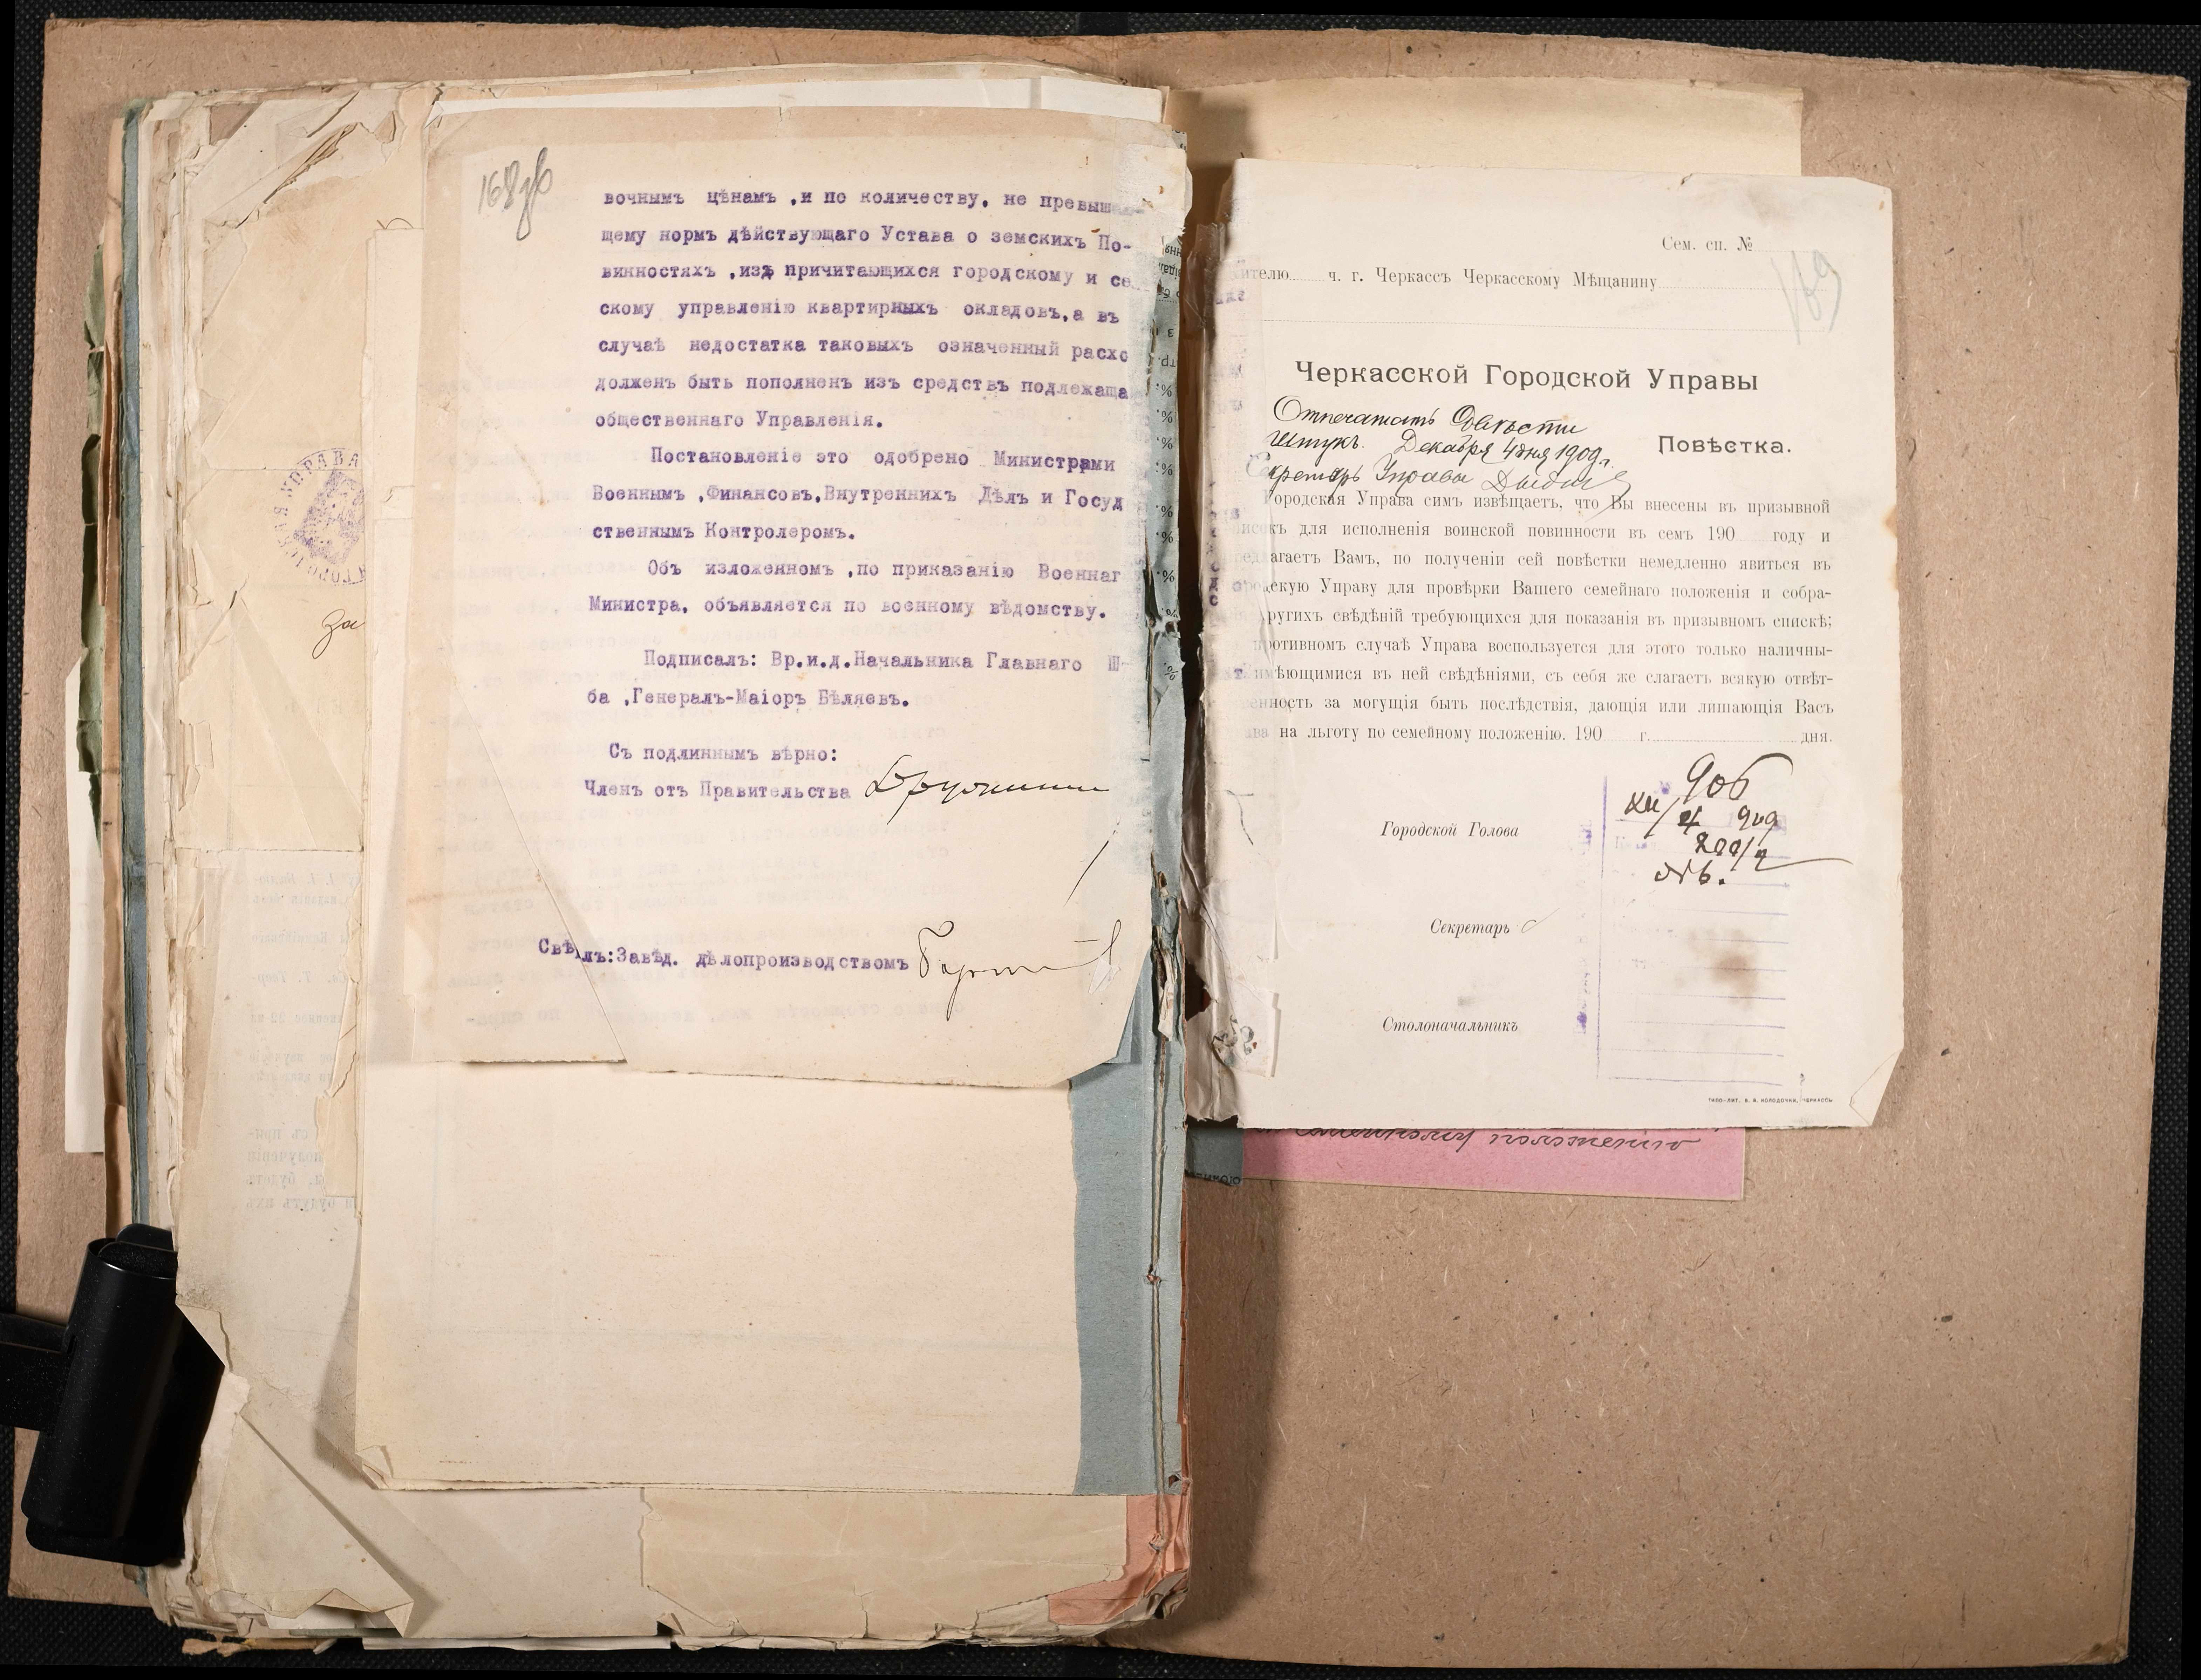 168 зв
вочнымъ цѣнамъ ,и по количеству, не превыш
щему нормъ дѣйствующаго Устава о земскихъ По-
винностяхъ ,изъ причитающихся городскому и се
скому управленію квартирныхъ окладовъ,а въ
случаѣ недостатка таковыхъ означенный расхо
долженъ быть пополненъ изъ средствъ подлежаща
общественнаго Управленія.
Постановленіе это одобрено Министрами
Военнымъ ,Финансовъ,Внутреннихъ Дѣлъ и Госуд
ственнымъ Контролеромъ.
Объ изложенномъ ,по приказанію Военнаг
Министра, объявляется по военному вѣдомству.
Подписалъ: Вр.и.д.Начальника Главнаго Ш-
ба ,Генералъ-Маіоръ Бѣляевъ.
Съ подлиннымъ вѣрно:
Членъ отъ Правительства
Свѣ лъ:Завѣд. дѣлопроизводствомъ
за
169
Сем. сп. №
ителю ч. г. Черкассъ Черкасскому Мѣщанину
Черкасской Городской Управы
Отпечатать Двѣсти
штукъ. Декабря 4 дня 1909 г.
Секретарь Управы
Повѣстка.
Городская Управа симъ извѣщаетъ, что Вы внесены въ призывной
писокъ для исполненія воинской повинности въ семъ 190 году и
едлагаетъ Вамъ, по полученіи сей повѣстки немедленно явиться въ
ородскую Управу для провѣрки Вашего семейнаго положенія и собра-
другихъ свѣдѣній требующихся для показанія въ призывномъ спискѣ;
противномъ случаѣ Управа воспользуется для этого только наличны-
имѣющимися въ ней свѣдѣніями, съ себя же слагаетъ всякую отвѣт-
енность за могущія быть послѣдствія, дающія или лишающія Васъ
ава на льготу по семейному положенію. 190 г. дня.
906
XII/4 909
200/2
Городской Голова
Секретарь
Столоначальникъ
ТИПО-ЛИТ. В. В. КОЛОДОЧКИ, ЧЕРКАССЫ
семейному положенію